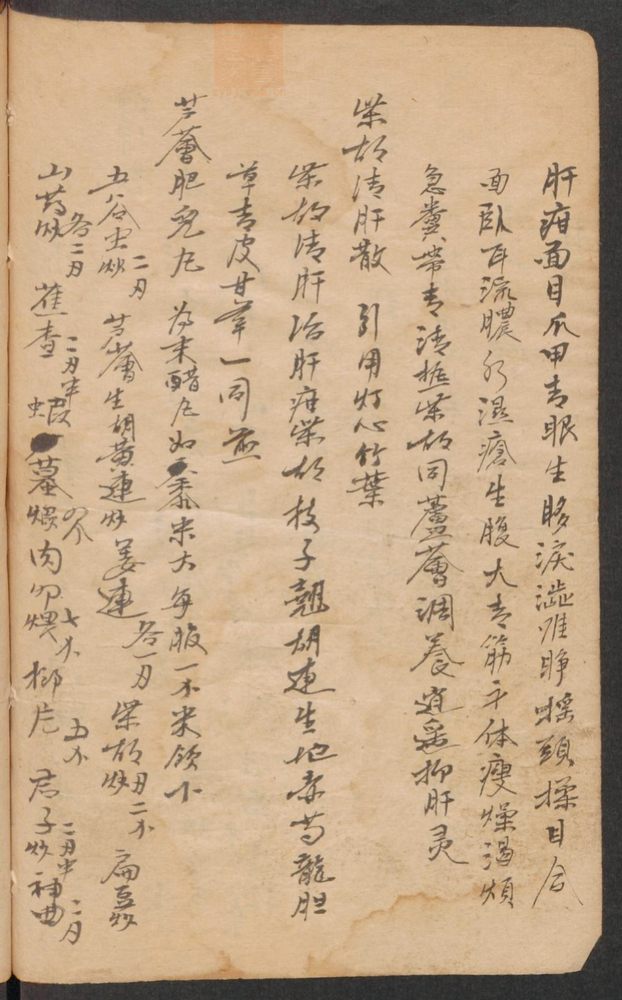 肝疳面目爪甲青眼生眵淚澁难睁摇頭揉目合
面臥耳流膿水濕瘡生腹大青筋身体瘦燥渴煩
急糞帶青清热柴胡同蘆薈調養逍遥抑肝灵
柴胡清肝散 引用灯心竹葉
柴胡清肝治肝疳柴胡枝子翹胡連生地赤芍龍胆
草青皮甘草一同煎
芦薈肥兒丸 为末醋丸如黍米大每服一 米飲下
五谷虫炒二刄 芦薈生胡黄連炒姜連各一刄 柴胡炒刄二 扁豆炒
山药炒各二刄 蕉查二刄半 蝦蟇煨四个 肉叩煨七 槟片五 君子炒二刄半 神曲二刄